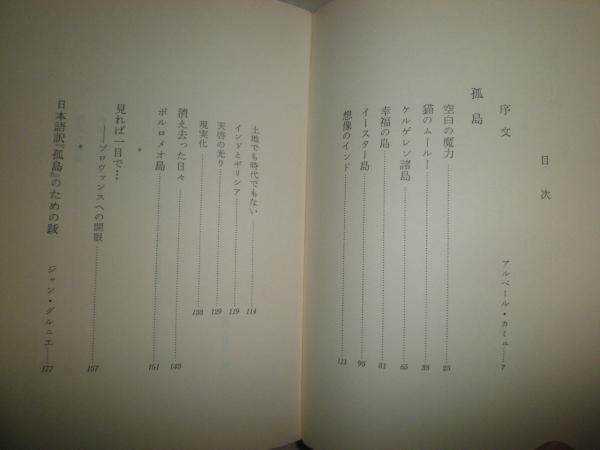 目次
序文 アルベール・カミュ 7
孤島
空白の魔力 23
猫のムールー 33
ケルゲレン諸島 65
幸福の島 81
イースター島 95
想像のインド 111
土地でも時代でもない 114
インドとギリシア 119
天啓の光り 129
現実化 138
消え去った日々 143
ボルロメオ島 151
*
見れば一目で…
——プロヴァンスへの開眼 157
*
日本語訳『孤島』のための跋 ジャン・グルニエ 177